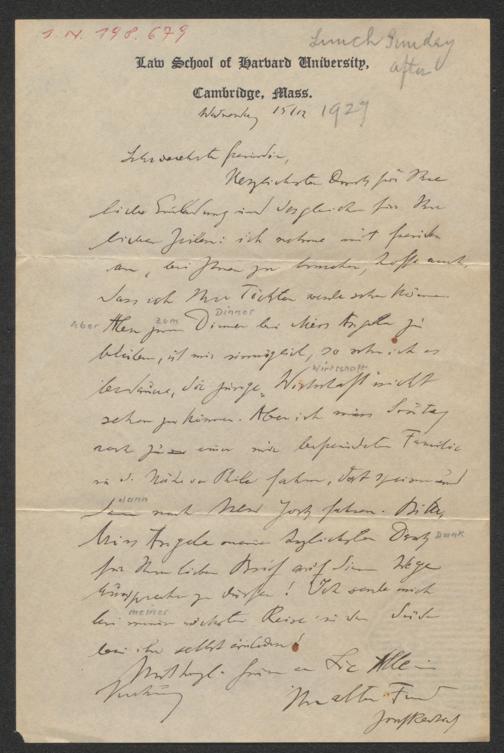 I. N. 198.679
Lunch Sunday
after
Law School of Harvard University,
Cambridge, Mass.
15/12 1927
Herzlichsten Dank für Ihre
liebe Einladung und desgleichen für Ihre
lieben Zeilen: ich nehme mit Freuden
an, bei Ihnen zu lunchen, hoffe auch,
dass ich Ihre Töchter werde sehen können
Dinner
Aber zum
Aber zum Dinner bei Miss Angela zu
bleiben, ist mir unmöglich, so sehr ich es
Wirtschaft
bedaure, die junge "Wirtschaft" nicht
sehen zu können. Aber ich muss Sonntag
noch zu einer mir befreundeten Familie
in d. Nähe von Phila fahren, dort speisen und
dann
dann nach New York fahren. Bitte,
Miss Angela meinen herzlichsten Dank
Dank
für Ihren lieben Brief auf diesem Wege
aussprechen zu dürfen! Ich werde mich
meiner
bei meiner nächsten Reise in den Süden
bei ihr selbst einladen!
Mit herzl. Grüssen an Sie Alle in
Verehrung
Ihr alter Freund
Josef Redlich